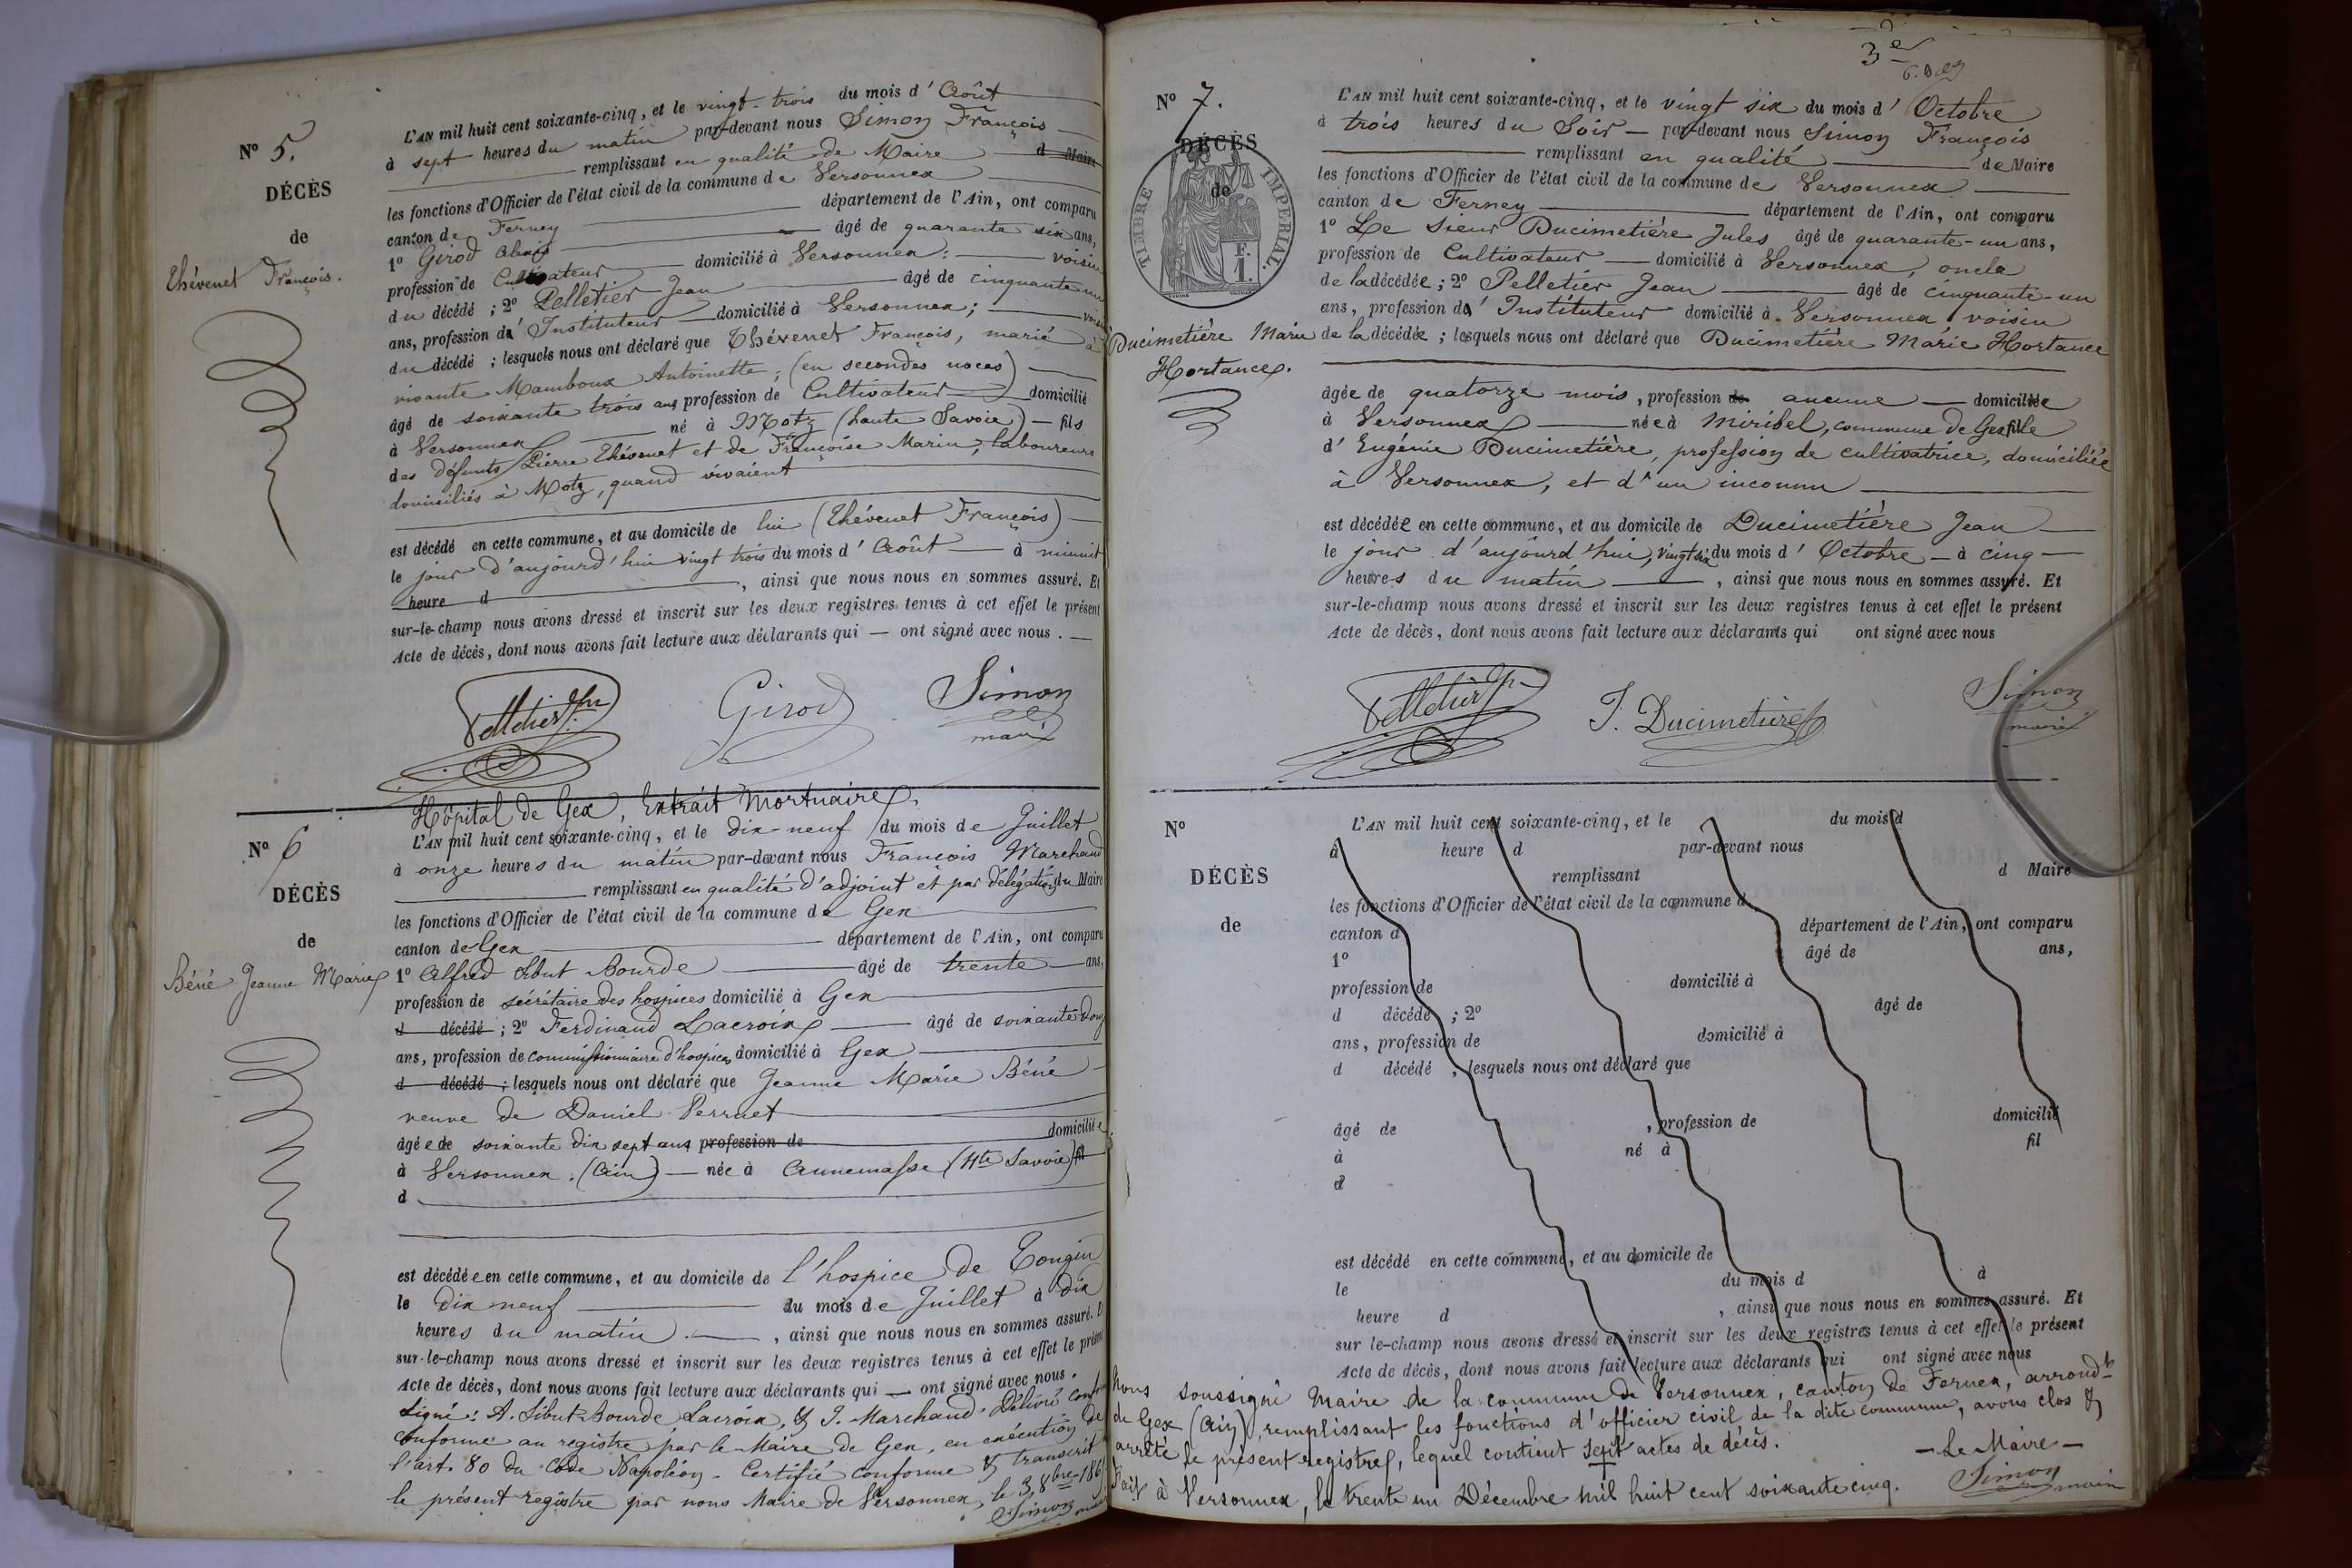 N° 5.
DÉCÈS
de
Thévenet François.
L'AN mil huit cent soixante-cinq, et le vingt-trois du mois d'Août
à sept heures du matin par-devant nous Simon François
remplissant en qualité de Maire d Maire
les fonctions d'Officier de l'état civil de la commune de Versonnex
canton de Ferney département de l'Ain, ont comparu
1° Girod Alexis âgé de quarante six ans,
profession de Cultivateur domicilié à Versonnex; voisin
du décédé ; 2° Pelletier Jean âgé de cinquante un
ans, profession d'Instituteur domicilié à Versonnex; voisin
du décédé ; lesquels nous ont déclaré que Thévenet François, marié à
vivante Mamboux Antoinette; (en secondes noces)
âgé de soixante trois ans profession de Cultivateur domicilié
à Versonnex né à Motz (haute Savoie) fils
des défunts Pierre Thévenet et de Françoise Marin, laboureurs
domiciliés à Motz, quand vivaient
est décédé en cette commune, et au domicile de lui (Thévenet François)
le jour d'aujourd'hui vingt trois du mois d'Août à minuit
heure d , ainsi que nous nous en sommes assuré. Et
sur-le-champ nous avons dressé et inscrit sur les deux registres tenus à cet effet le présent
Acte de décès, dont nous avons fait lecture aux déclarants qui — ont signé avec nous.
Pelletier Jn Girod Simon
maire
N° 6
DÉCÈS
de
Béné Jeanne Marie
Hôpital de Gex, Extrait Mortuaire.
L'AN mil huit cent soixante-cinq, et le dix neuf du mois de Juillet
à onze heures du matin par-devant nous François Marchand
remplissant en qualité d'adjoint et par délégation du Maire
les fonctions d'Officier de l'état civil de la commune de Gex
canton de Gex département de l'Ain, ont comparu
1° Alfred Sibut Bourde âgé de trente ans,
profession de secrétaire des hospices domicilié à Gex
d décédé ; 2° Ferdinand Lacroix âgé de soixante douze
ans, profession de commissionnaire d'hospices domicilié à Gex
d décédé ; lesquels nous ont déclaré que Jeanne Marie Béné
veuve de Daniel Perruet
âgée de soixante dix sept ans profession de domiciliée
à Versonnex (Ain) — née à Annemasse (Hte Savoie) fil
d
est décédée en cette commune, et au domicile de l'hospice de Tougin
le dix neuf du mois de Juillet à dix
heures du matin. , ainsi que nous nous en sommes assuré. Et
sur-le-champ nous avons dressé et inscrit sur les deux registres tenus à cet effet le présent
Acte de décès, dont nous avons fait lecture aux déclarants qui — ont signé avec nous.
Signé: A. Sibut Bourde Lacroix, & F. Marchand. Délivré
conforme au registre par le Maire de Gex, en exécution de
l'art. 80 du Code Napoléon. Certifié conforme & transcrit
le présent registre par nous Maire de Versonnex, le 3 8bre 186
Simon
3e
N° 7.
DÉCÈS
de
TIMBRE IMPERIAL.
F.
1
Ducimetière Marie
Hortance.
L'AN mil huit cent soixante-cinq, et le vingt six du mois d'Octobre
à trois heures du Soir — par-devant nous Simon François
remplissant en qualité de Maire
les fonctions d'Officier de l'état civil de la commune de Versonnex
canton de Ferney département de l'Ain, ont comparu
1° Le Sieur Ducimetière Jules âgé de quarante-un ans,
profession de Cultivateur domicilié à Versonnex, oncle
de la décédée ; 2° Pelletier Jean âgé de cinquante-un
ans, profession d'Instituteur domicilié à Versonnex voisin
de la décédée ; lesquels nous ont déclaré que Ducimetière Marie Hortance
âgée de quatorze mois, profession de aucune domiciliée
à Versonnex née à Miribel, commune de Gex fille
d'Eugénie Ducimetière, profession de cultivatrice, domiciliée
à Versonnex, et d'un inconnu
est décédée en cette commune, et au domicile de Ducimetière Jean
le jour d'aujourd'hui, vingt six du mois d'Octobre — à cinq
heures du matin , ainsi que nous nous en sommes assuré. Et
sur-le-champ nous avons dressé et inscrit sur les deux registres tenus à cet effet le présent
Acte de décès, dont nous avons fait lecture aux déclarants qui ont signé avec nous
Pelletier Jn J. Ducimetière Simon
maire
N°
DÉCÈS
de
L'AN mil huit cent soixante-cinq, et le du mois d
à heure d par-devant nous
remplissant d Maire
les fonctions d'Officier de l'état civil de la commune d
canton d département de l'Ain, ont comparu
1° âgé de ans,
profession de domicilié à
d décédé ; 2° âgé de
ans, profession de domicilié à
d décédé , lesquels nous ont déclaré que
âgé de , profession de domicilié
à né à fil
d
est décédé en cette commune, et au domicile de
le du mois d à
heure d , ainsi que nous nous en sommes assuré. Et
sur le-champ nous avons dressé et inscrit sur les deux registres tenus à cet effet le présent
Acte de décès, dont nous avons fait lecture aux déclarants qui ont signé avec nous
Nous soussigné Maire de la commune de Versonnex, canton de Fernex, arrondt
de Gex (Ain), remplissant les fonctions d'officier civil de la dite commune, avons clos &
arrêté le présent registre, lequel contient sept actes de décès.
— Le Maire —
Fait à Versonnex, le trente un Décembre mil huit cent soixante cinq.
Simon maire